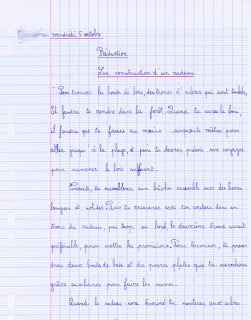 vendredi 5 octobre
Rédaction
La construction d'un radeau
Pour trouver les bouts de bois, des troncs d'arbres qui sont tombés,
il faudra te rendre dans la forêt. Quand tu auras le bois,
il faudra que tu fasses au moins cinquante mètres pour
aller jusqu'à la plage, et puis tu devras prévoir ses voyages
pour ramener le bois suffisant.
Ensuite, tu assembleras les bûches ensemble avec des lianes
longues et solides. Puis tu creuseras avec ton couteau dans un
tronc du radeau, pas trop au bord, le deuxième tronc serait
préférable, pour mettre les provisions. Pour terminer, tu prendras
deux bouts de bois et des pierres plates que tu accrocheras
grâce aux lianes pour faire les rames.
Quand le radeau sera terminé tu monteras avec